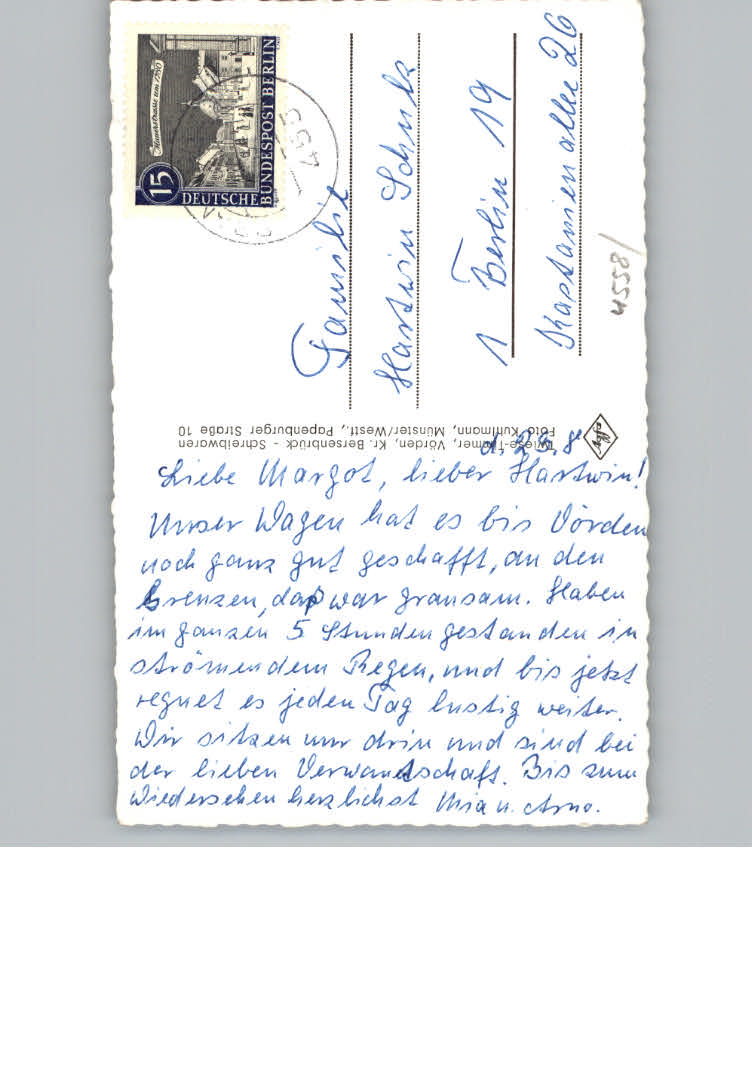 Mauerstrasse um 1780
15
DEUTSCHE
BUNDESPOST BERLIN
455
Familie
Hartwin Schulz
1 Berlin 19
Kastanienallee 26
4558/
Wiese-Trimer, Vörden, Kr. Bersenbrück - Schreibwaren
Foto Kuhlmann, Münster/Westf., Papenburger Straße 10
d. 25.8
Liebe Margot, lieber Hartwin!
Unser Wagen hat es bis Vörden
noch ganz gut geschafft, an den
Grenzen, daß war grausam. Haben
im ganzen 5 Stunden gestanden in
strömendem Regen, und bis jetzt
regnet es jeden Tag lustig weiter.
Wir sitzen nur drin und sind bei
der lieben Verwandschaft. Bis zum
Wiedersehen herzlichst Mia u. Arno.